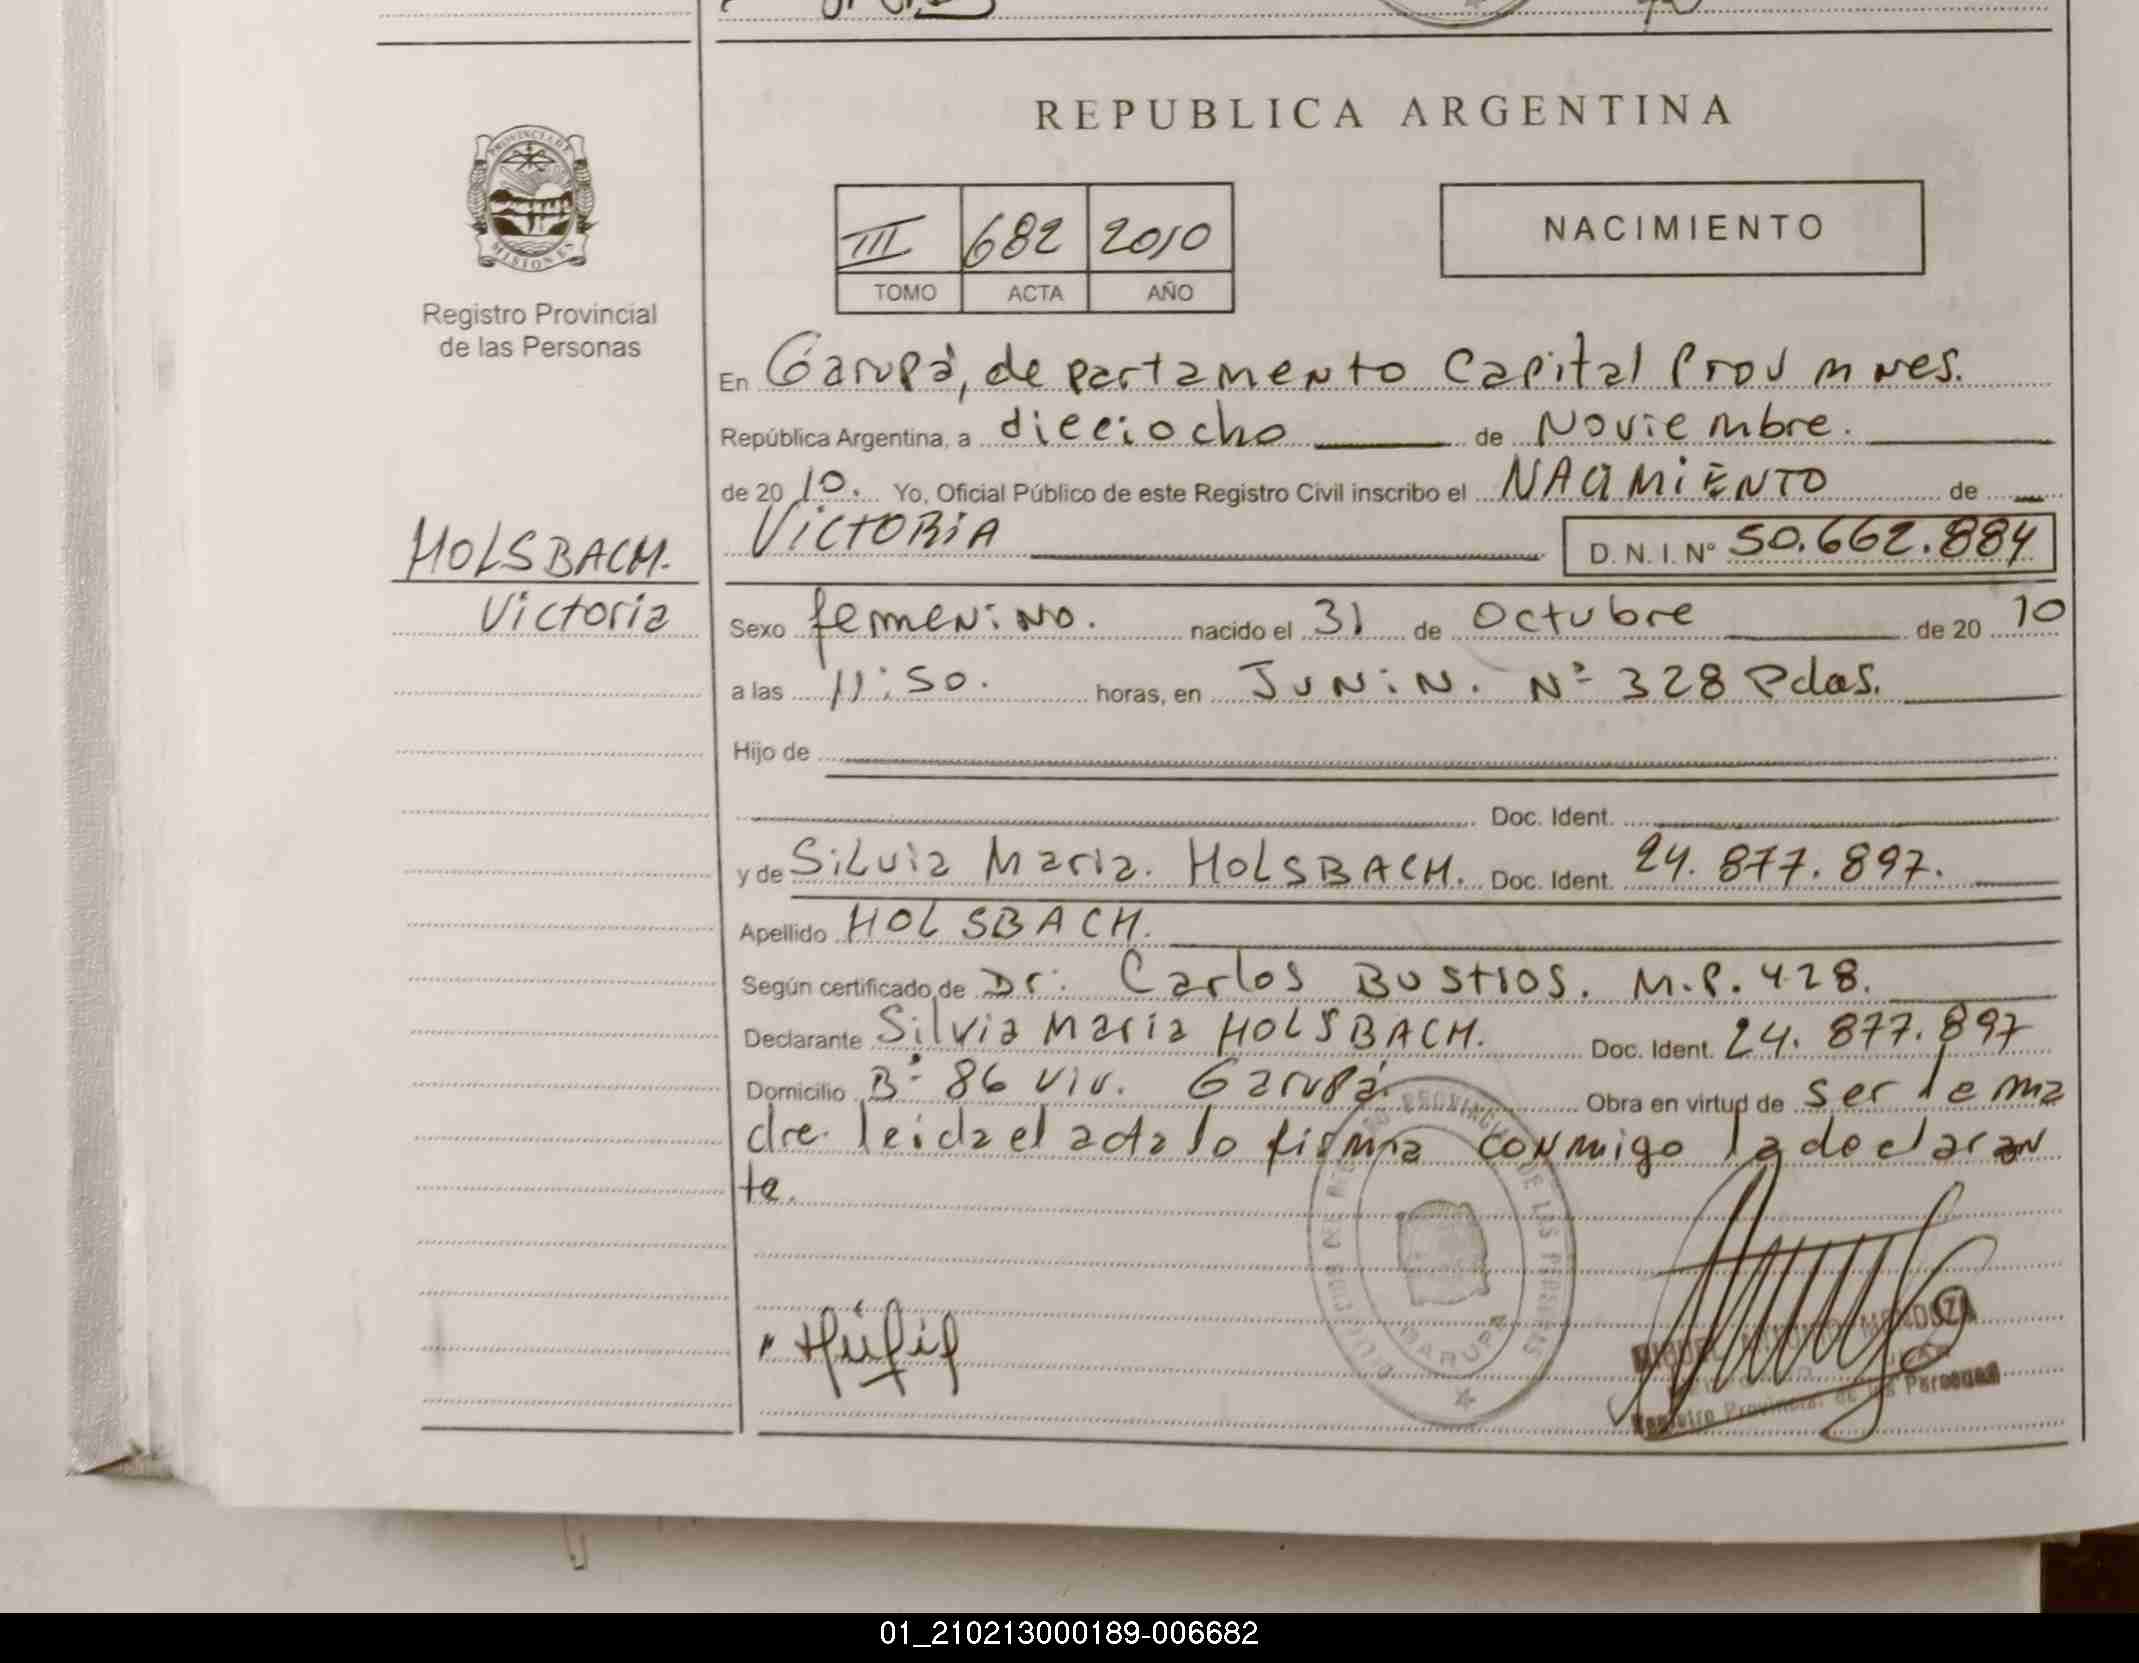 REPUBLICA ARGENTINA
PROVINCIA DE
MISIONES
Registro Provincial
de las Personas
III 682 2010
TOMO ACTA AÑO
NACIMIENTO
En Garupá, departamento Capital Prov Mnes.
República Argentina, a dieciocho de Noviembre.
de 20 10. Yo, Oficial Público de este Registro Civil inscribo el NACIMIENTO de
HOLSBACH.
Victoria
VICTORIA D.N.I. Nº 50.662.884
Sexo femenino. nacido el 31 de Octubre de 20 10
a las 11:50. horas, en JUNIN. Nº 328 Pdas.
Hijo de
Doc. Ident.
y de Silvia Maria. HOLSBACH. Doc. Ident. 24.877.897.
Apellido HOLSBACH.
Según certificado de Dr. Carlos BUSTIOS. M.P. 428.
Declarante Silvia Maria HOLSBACH. Doc. Ident. 24.877.897
Domicilio Bº 86 viv. Garupá Obra en virtud de ser la ma
dre. leida el acta lo firma conmigo la declaran
te.
GARUPA
MENDOZA
Registro Provincial de las Personas
01_210213000189-006682